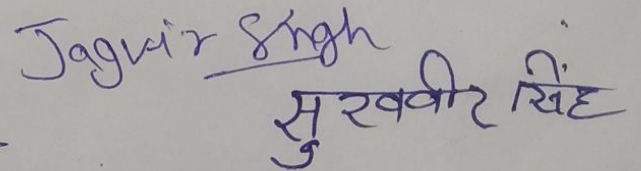 Jagvir Singh
सुखवीर सिंह